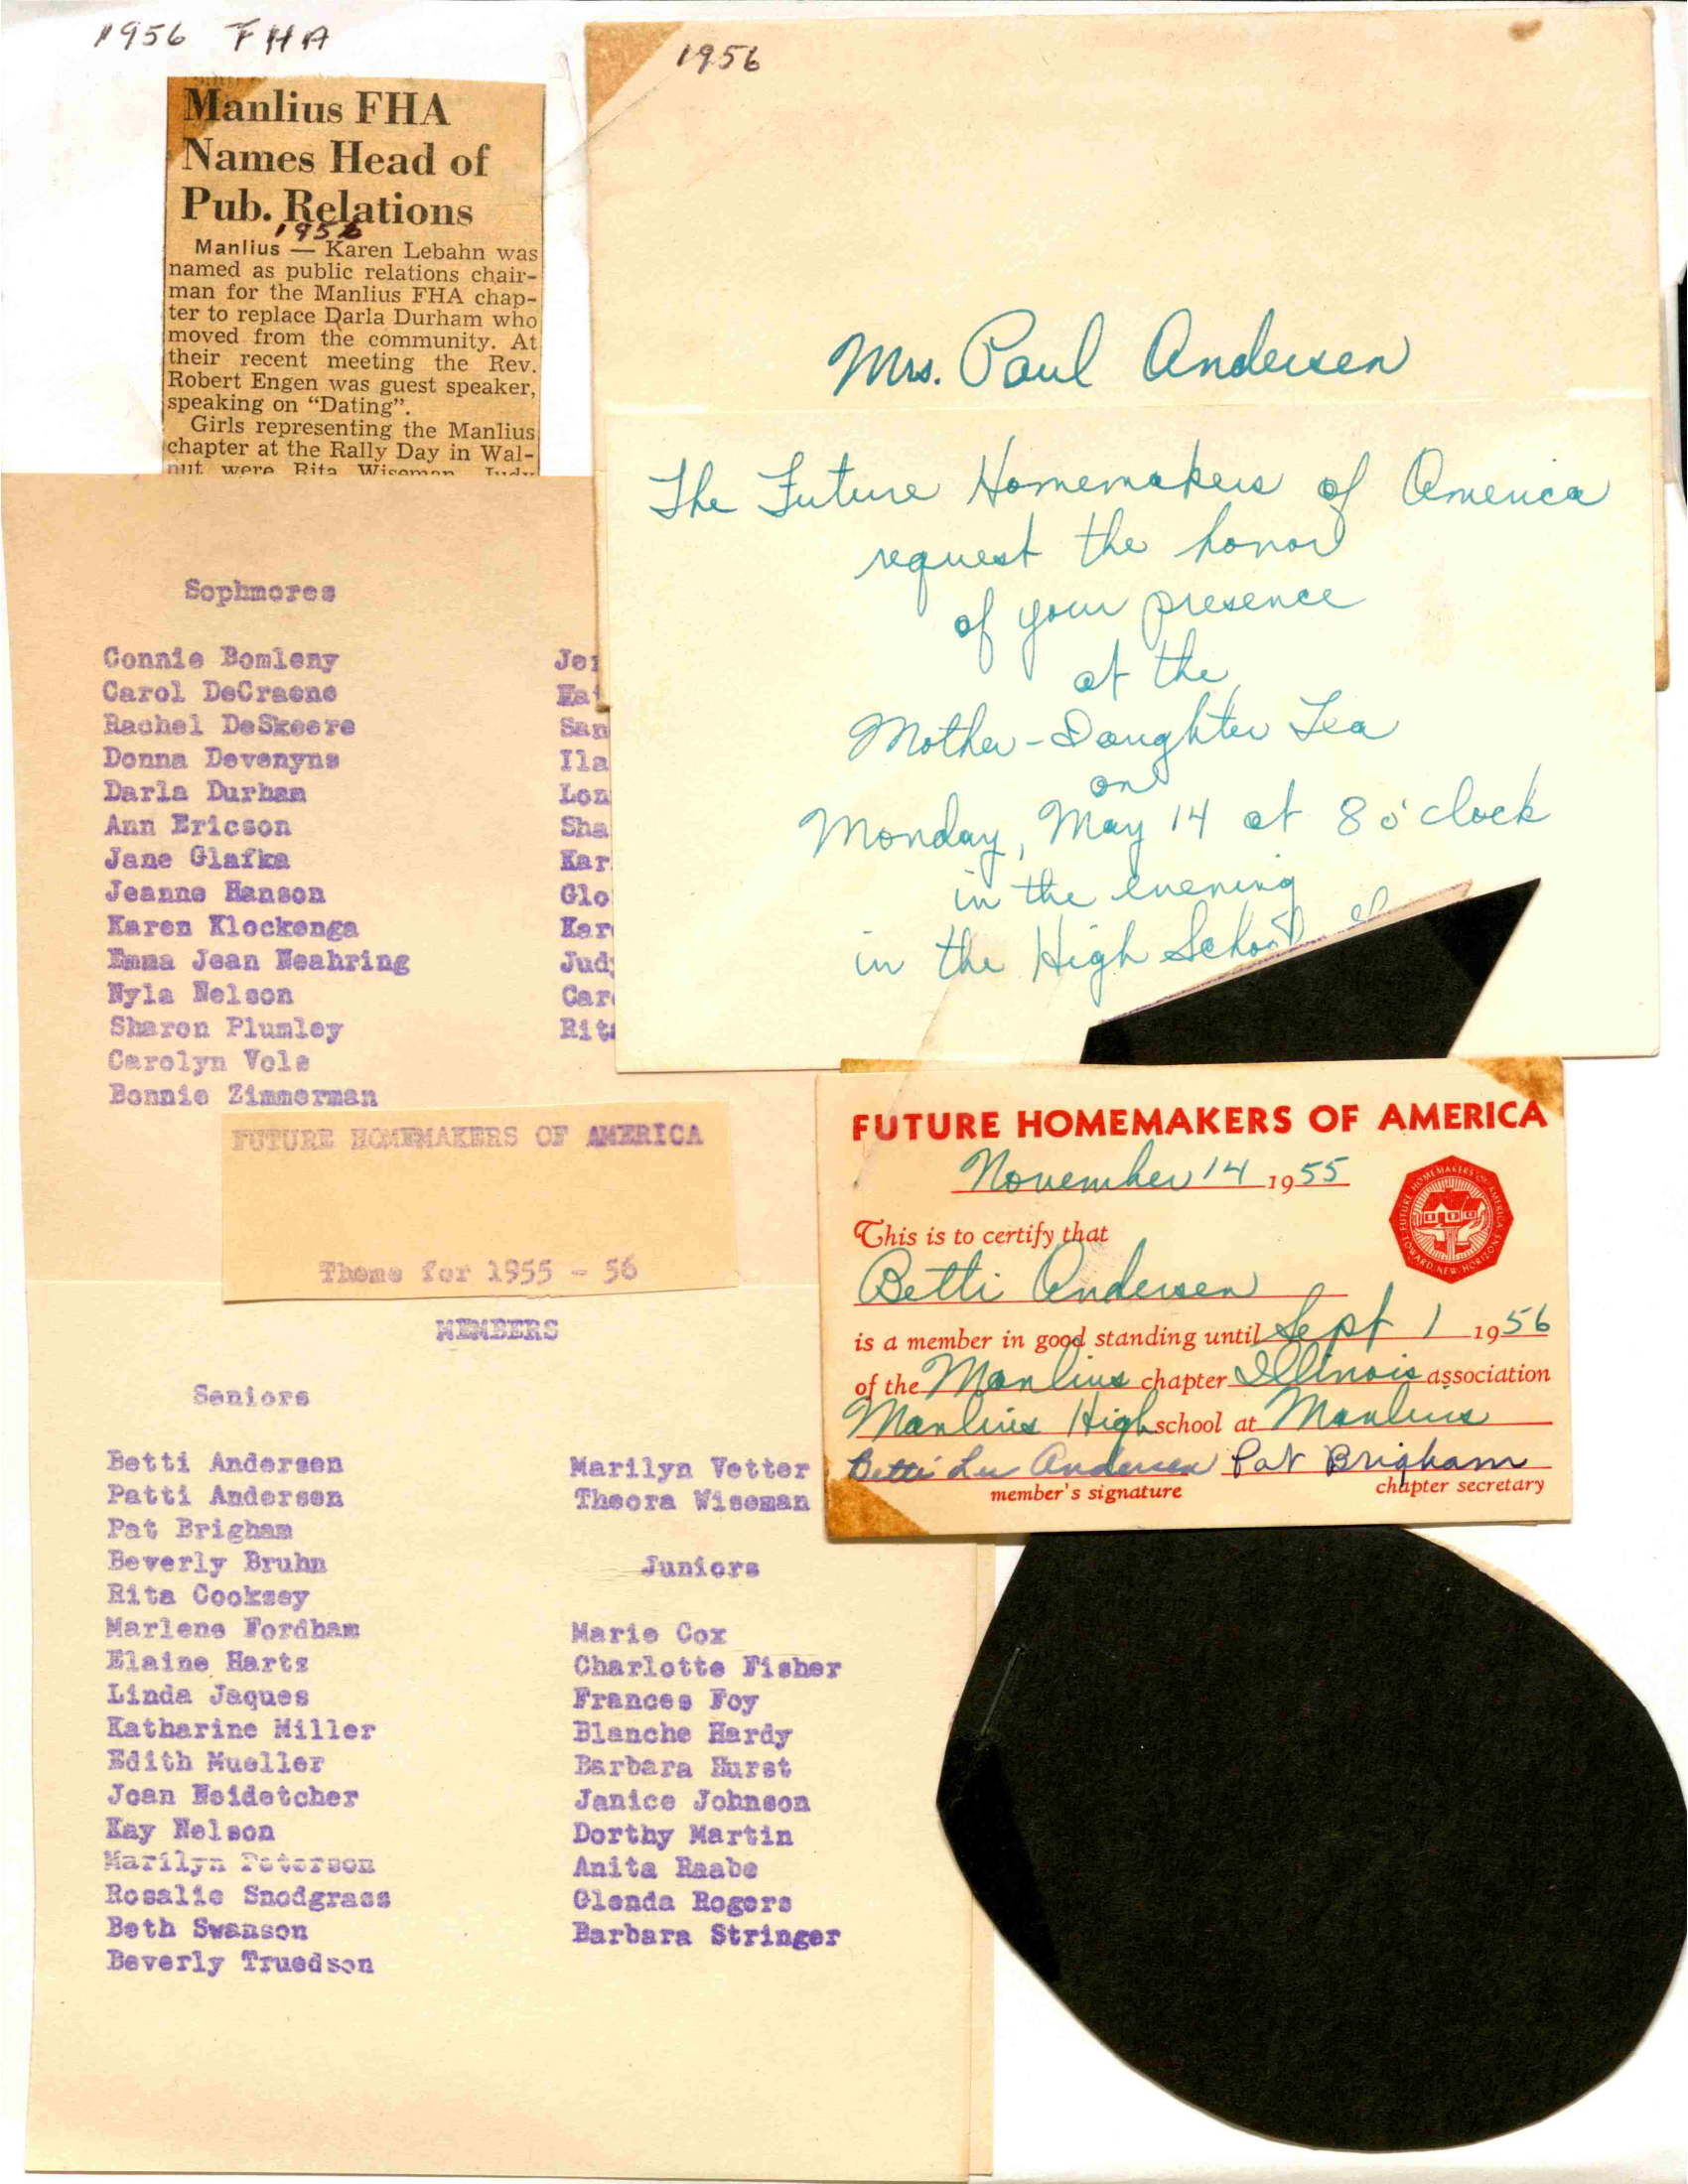 1956 FHA
Manlius FHA
Names Head of
Pub. Relations
1956
Manlius — Karen Lebahn was
named as public relations chair-
man for the Manlius FHA chap-
ter to replace Darla Durham who
moved from the community. At
their recent meeting the Rev.
Robert Engen was guest speaker,
speaking on “Dating”.
Girls representing the Manlius
chapter at the Rally Day in Wal-
nut were Rita Wiseman, Judy
1956
Mrs. Paul Andersen
The Future Homemakers of America
request the honor
of your presence
at the
Mother-Daughter Tea
on
Monday, May 14 at 8 o'clock
in the evening
in the High School
Sophmores
Connie Bomleny
Carol DeCraene
Rachel DeSkeere
Donna Devenyns
Darla Durham
Ann Ericson
Jane Glafka
Jeanne Hanson
Karen Klockenga
Emma Jean Neahring
Nyla Nelson
Sharon Plumley
Carolyn Vols
Bonnie Zimmerman
San
Ila
Lon
Sha
Kar
Glo
Kar
Jud
Car
Rit
FUTURE HOMEMAKERS OF AMERICA
Theme for 1955 - 56
MEMBERS
Seniors
Betti Andersen
Patti Andersen
Pat Brigham
Beverly Bruhn
Rita Cooksey
Marlene Fordham
Elaine Hartz
Linda Jaques
Katharine Miller
Edith Mueller
Joan Neidetcher
Kay Nelson
Marilyn Peterson
Rosalie Snodgrass
Beth Swanson
Beverly Truedson
Marilyn Vetter
Theora Wiseman
Juniors
Marie Cox
Charlotte Fisher
Frances Foy
Blanche Hardy
Barbara Hurst
Janice Johnson
Dorthy Martin
Anita Raabe
Glenda Rogers
Barbara Stringer
FUTURE HOMEMAKERS OF AMERICA
November 14 1955
FUTURE HOMEMAKERS OF AMERICA
TOWARD NEW HORIZONS
This is to certify that
Betti Andersen
is a member in good standing until Sept 1 1956
of the Manlius chapter Illinois association
Manlius High school at Manlius
Betti Lu Andersen Pat Brigham
member's signature chapter secretary